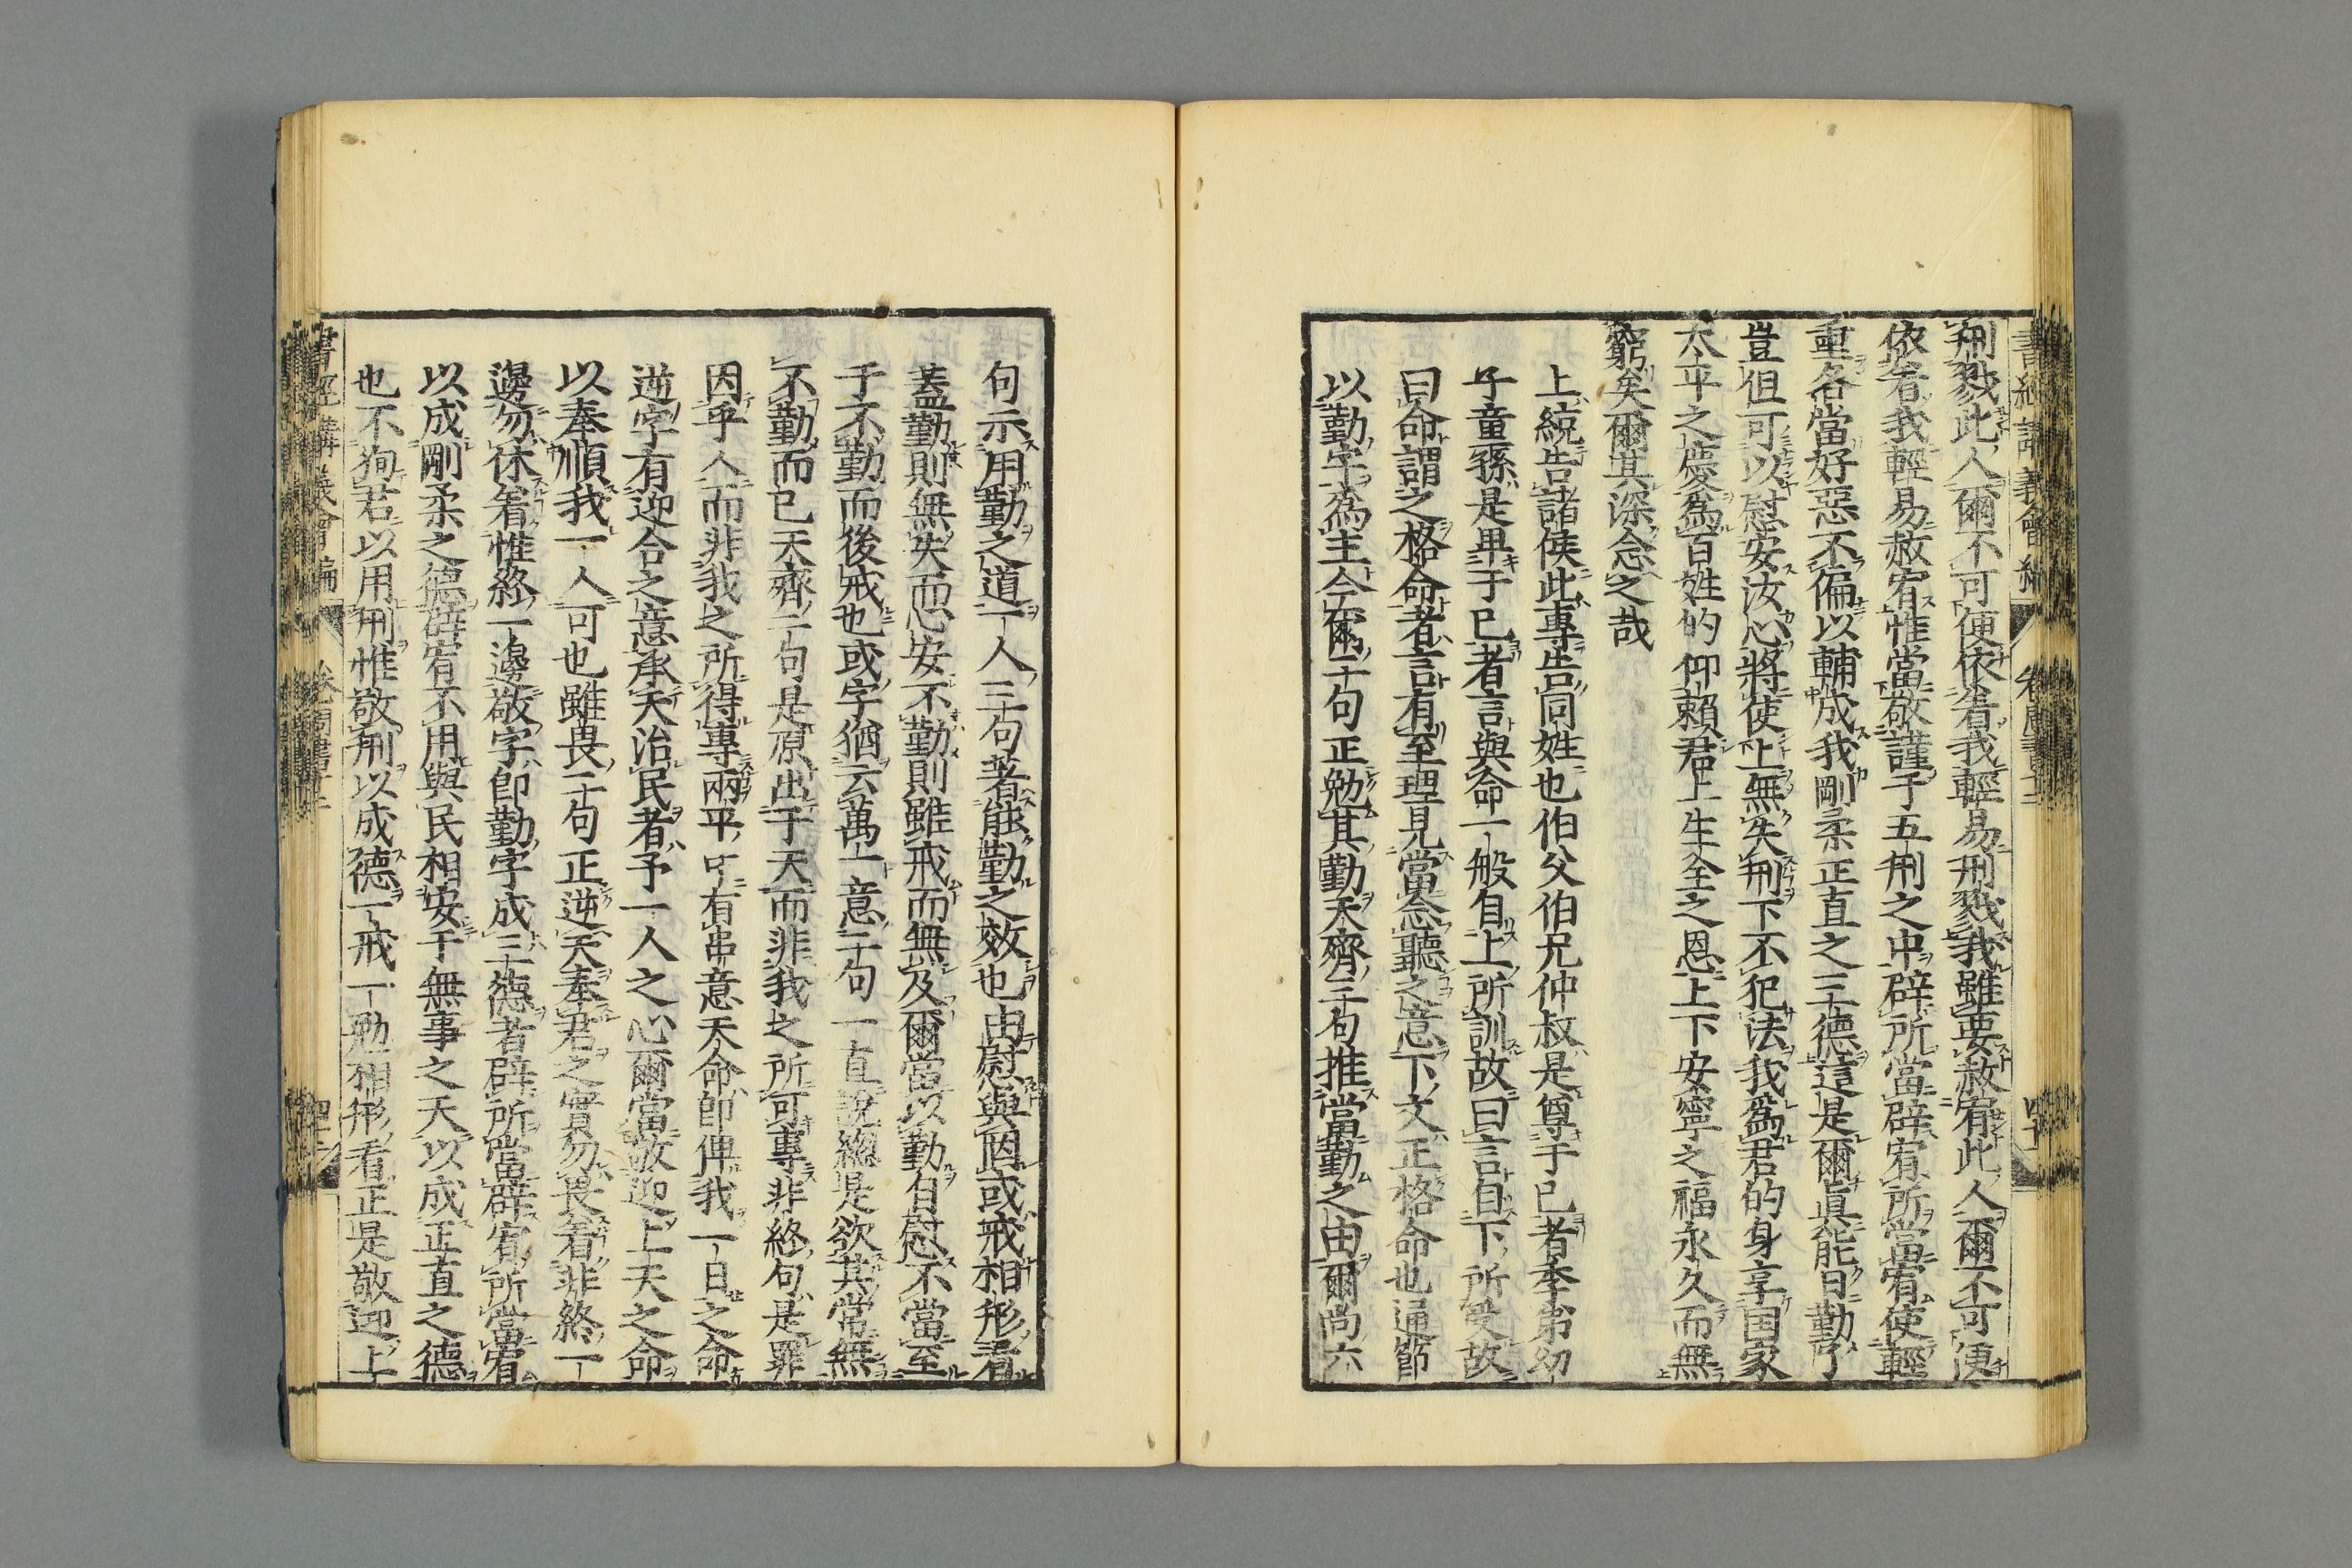 刑戮此人爾不可便依着我輕易刑戮我雖要赦宥此人爾不可便
依着我輕易赦宥惟當敬謹于五刑之中辟所當辟宥所當宥使輕
重各當好惡不偏以輔成我剛柔正直之三德這是爾眞能日勤了
豈但可以慰安汝心將使上無失刑下不犯法我爲君的身享国家
太平之慶爲百姓的仰賴君上生全之恩上下安寧之福永久而無
窮矣爾其深念之哉
上統告諸侯此專告同姓也伯父伯兄仲叔是尊于已者季弟幼
子童孫是卑于已者言與命一般自上所訓故曰言自下所受故
曰命謂之格命者言有至理見當念聽之意下文正格命也通節
以勤字爲主今爾二句正勉其勤天齊三句推當勤之由爾尚六
句示用勤之道一人三句著能勤之效也由慰與因或戒相形看
蓋勤則無失而心安不勤則雖戒而無及爾當以勤自慰不當至
于不勤而後戒也或字猶云萬一意二句一直說總是欲其常無
不勤而已天齊二句是原出于天而非我之所可專非終句是罪
因乎人而非我之所得專兩平中有串意天命卽俾我一日之命
逆字有迎合之意承天治民者予一人之心爾當敬迎上天之命
以奉順我一人可也雖畏二句正逆天奉君之實勿畏着非終一
邊勿休着惟終一邊敬字卽勤字成三德者辟所當辟宥所當宥
以成剛柔之德辟宥不用與民相安于無事之天以成正直之德
也不狥君以用刑惟敬刑以成德一戒一勉相形看正是敬迎上
書經講義會編
卷
周書